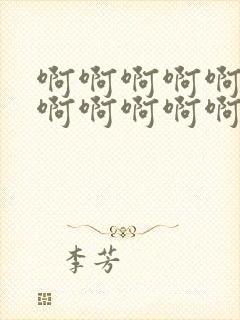 啊啊啊啊啊
啊啊啊啊啊
李芳